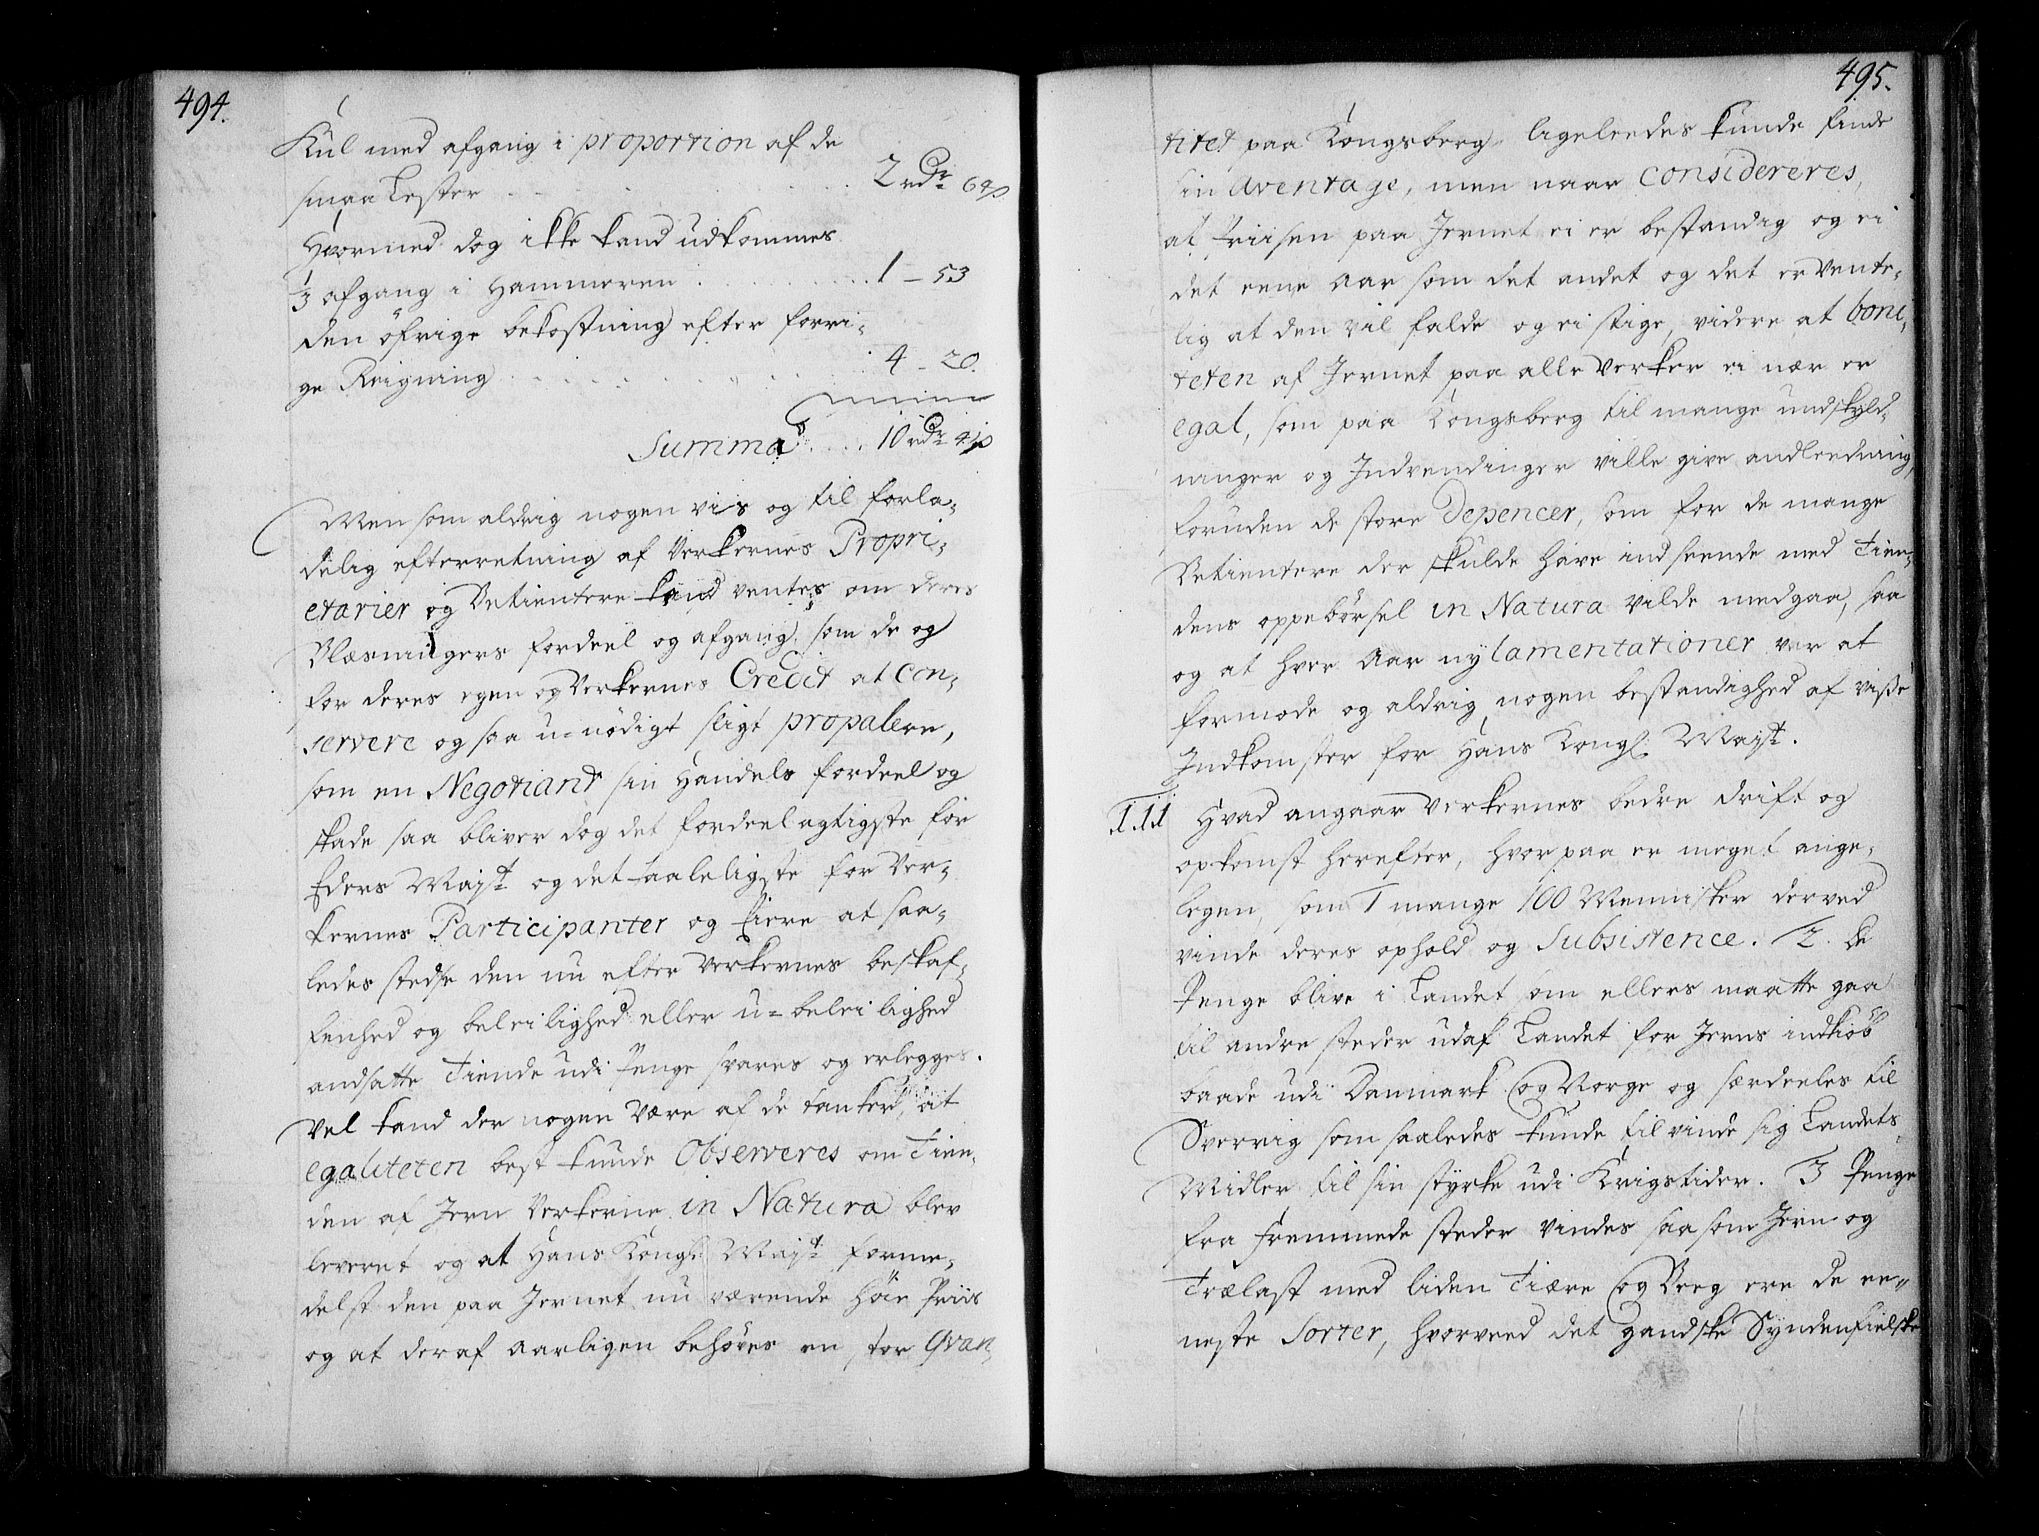 494.
Kul med afgang i proportion af de
smaa Lester . . . 2 rdr 64 s
Hvormed dog ikke kand udkommes
1/3 afgang i Hammeren . . . 1 – 53
den öfrige bekostning efter forri-
ge Reigning . . . 4 – 20.
Summa . . . 10 rdr 41 s
Men som aldrig nogen vis og til forla-
delig efterretning af Verkernes Propri-
etarier og Betientere kand ventes om deres
Blæsningers fordeel og afgang, som de og
for deres egen og Verkernes Credit at con-
servere og saa u-nödigt sligt propalere,
som en Negotiant sin Handels fordeel og
skade saa bliver dog det fordeelagtigste for
Eders Mayst: og det taaleligste for Ver-
kernes Participanter og Eiere at saa-
ledes stedse den nu efter Verkernes beskaf-
fenhed og beleilighed eller u-beleilighed
andsatte Tiende udi Penge svares og erlegges.
Vel kand der nogen være af de tanker, at
egaliteten best kunde Observeres om Tien-
den af Jern Verkerne in Natura blev
leveret og at Hans Kongl: Mayst: forme-
delst den paa Jernet nu værende höie Priis
og at deraf aarligen behöves en stor Qvan-
495.
titet paa Kongsberg ligeleedes kunde finde
sin Aventage, men naar considereres,
at Priisen paa Jernet ei er bestandig og ei
det eene Aar som det andet og det er vente-
lig at den vil falde og ei stige, videre at boni-
teten af Jernet paa alle Verker ei nær er
egal, som paa Kongsberg til mange undskyld-
ninger og Indvendinger ville give andleedning,
foruden de store Depencer, som for de mange
Betientere der skulde have indseende med Tien-
dens oppebörsel in Natura vilde medgaa, saa
og at hver Aar ny lamentationer var at
formode og aldrig nogen bestandighed af visse
Indkomster for Hans Kongl: Mayst.
III Hvad angaar Verkernes bedre drift og
opkomst herefter, hvorpaa er meget ange-
legen, som 1 mange 100 Mennisker derved
vinde deres ophold og Subsistence. 2. De
Penge blive i Landet som ellers maatte gaa
til andre steder udaf Landet for Jerns indkiöb
baade udi Danmark og Norge og særdeeles til
Sverrig som saaledes kunde tilvinde sig Landets
Midler til sin styrke udi Krigstider. 3 Penge
fra fremmede steder vindes saasom Jern og
Trælast med liden Tiære og Beeg ere de ee-
neste Sorter, hvorved det gandske Syndenfielske